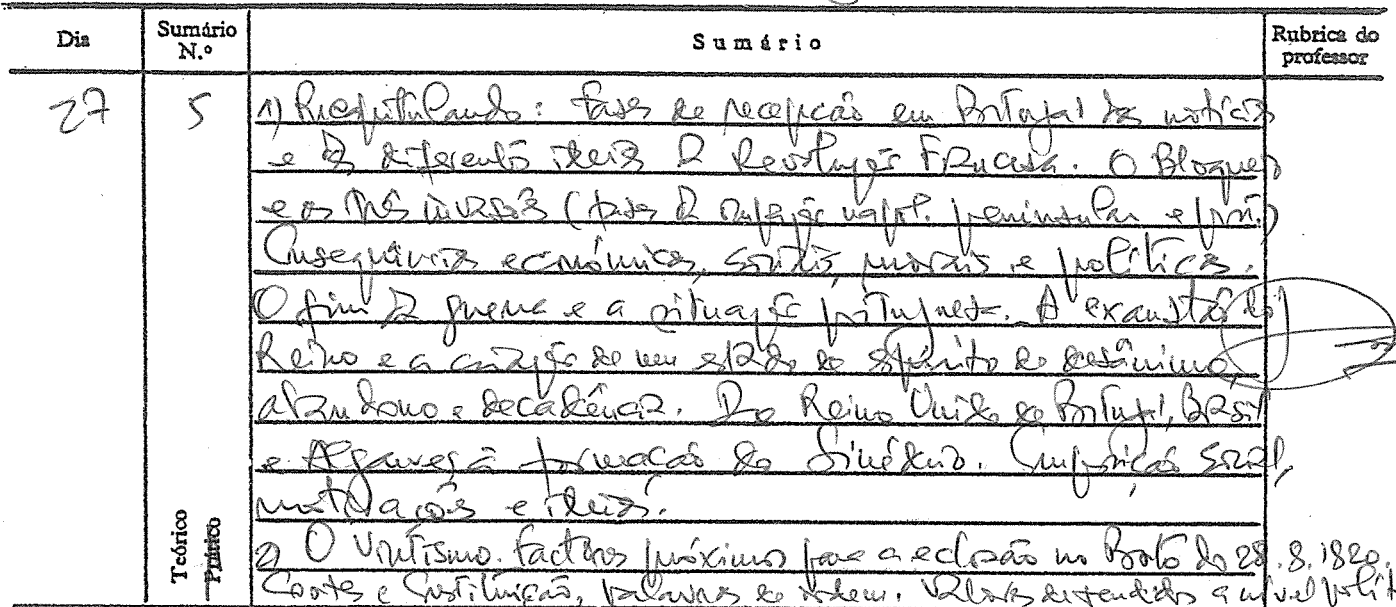 Dia
Sumário N.º
Sumário
Rubrica do professor
27
5
1) Recapitulando: fases de recepção em Portugal das notícias
e das diferentes ideias da Revolução Francesa. O Bloqueio
e as três invasões (fases da napol. peninsular e
Consequências económicas, sociais, morais e políticas.
O fim da guerra e a situação portuguesa. A exaustão do
Reino e a criação de um estado de espírito de desânimo,
abandono e decadência. Do Reino Unido de Portugal, Brasil
e Algarves à formação do Sinédrio. Composição social,
motivações e ideias.
Teórico
Prático
2) O Vintismo. Factores próximos para a eclosão no Porto do 28.8.1820.
Cortes e Constituição, palavras de ordem. Valores defendidos a nível polít